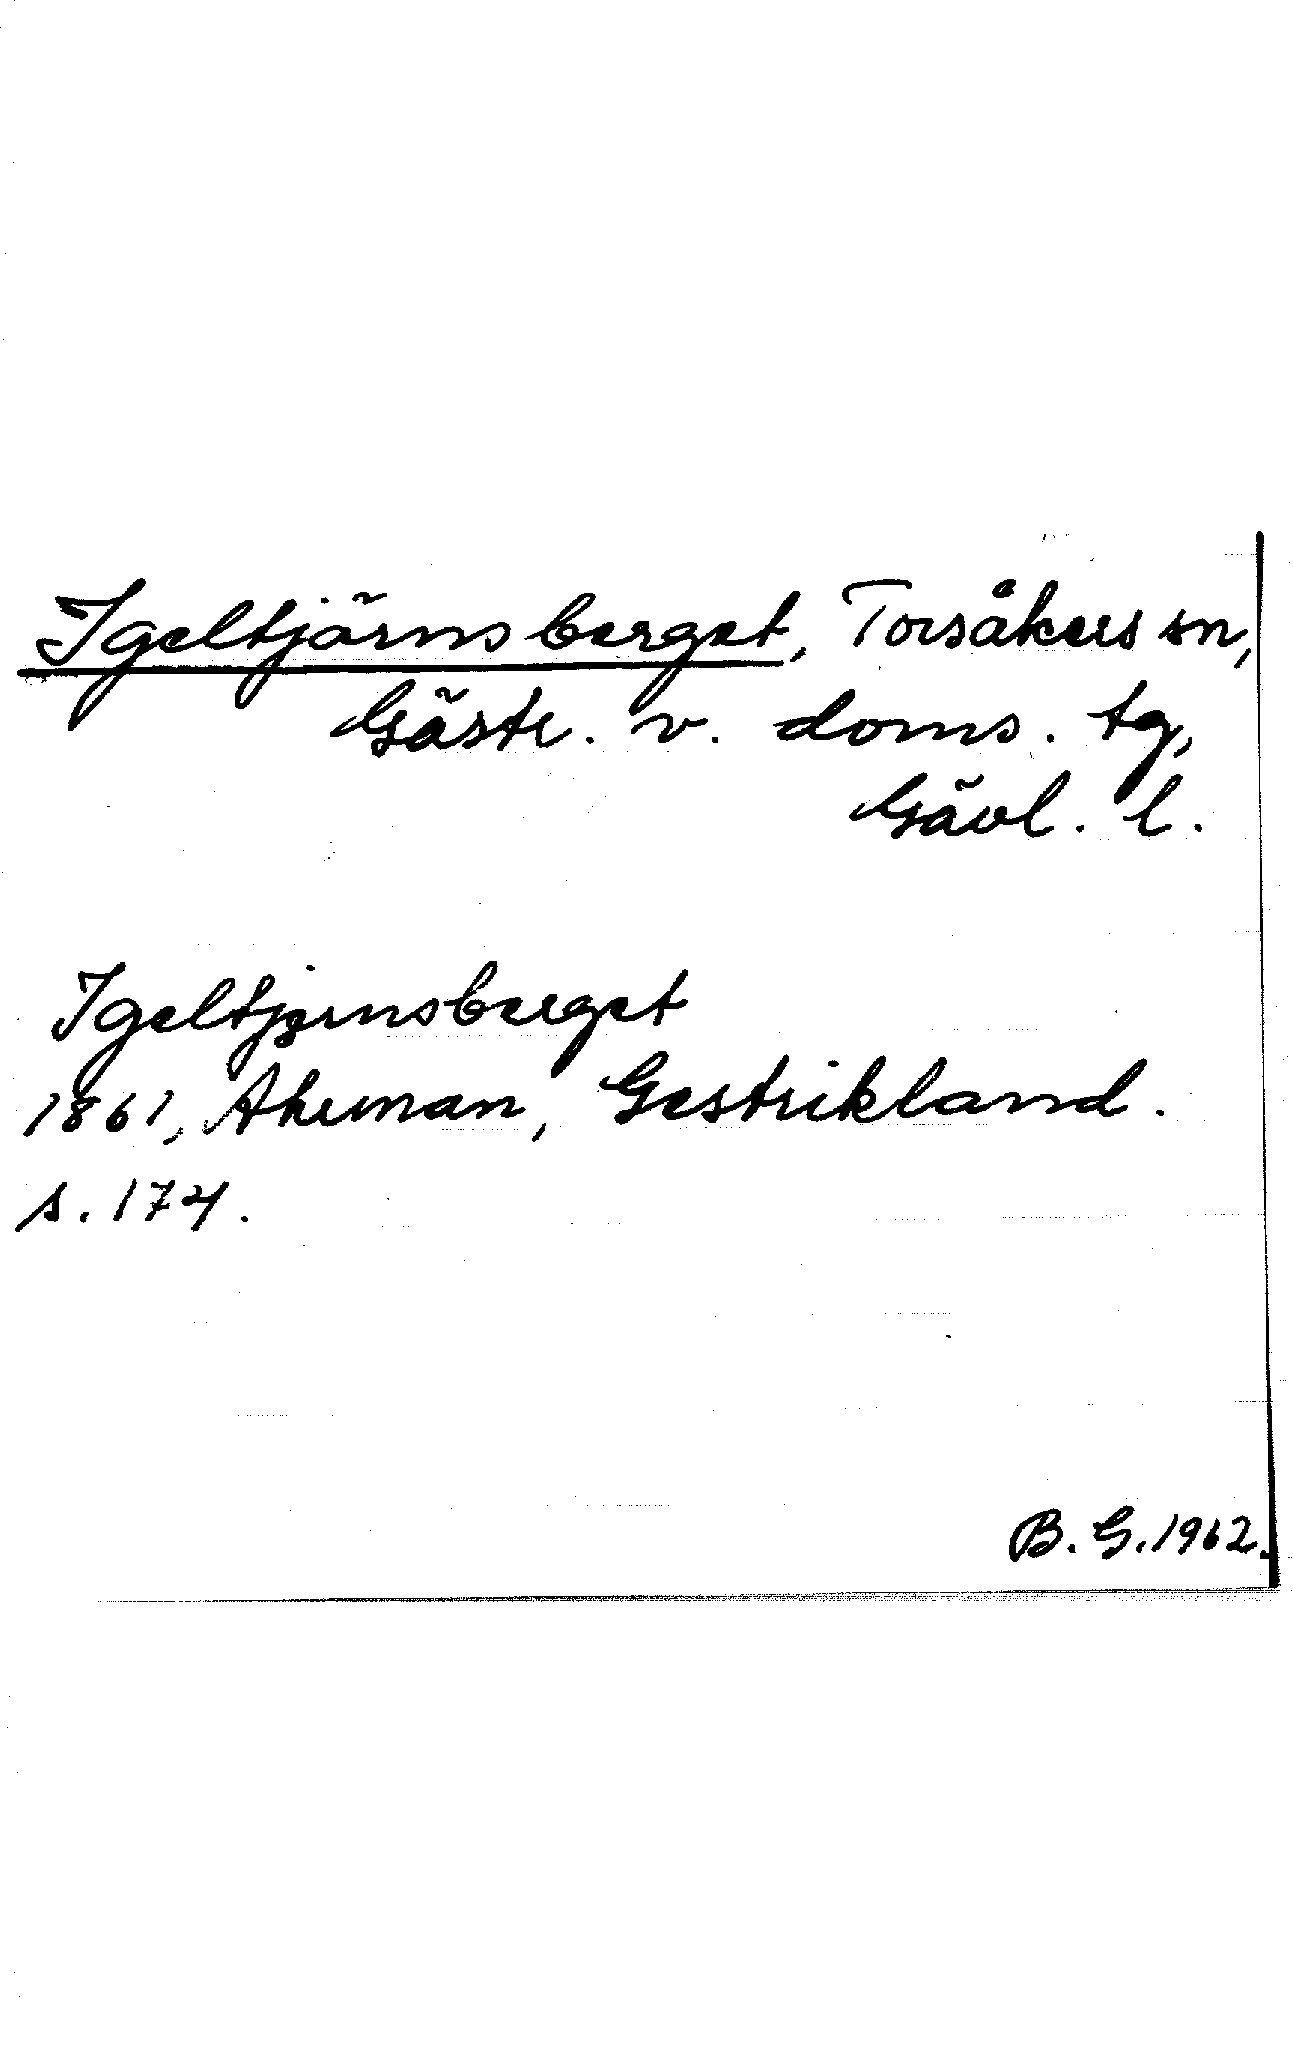 Igeltjärnsberget, Torsåkers sn,
Gästr. v. doms. tg,
Gävl. l.
Igeltjernsberget
1861, Ahrman, Gestrikland.
s. 174.
B. G. 1962.